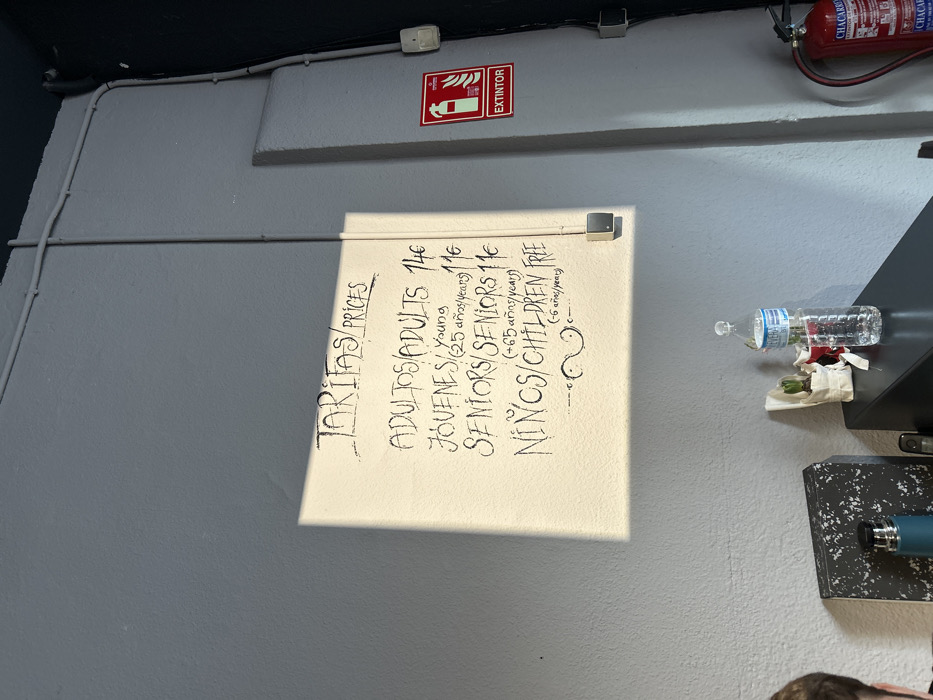 EXTINTOR
TARIFAS/PRICES
ADULTOS/ADULTS 14€
JÓVENES/young 11€
(25 años/years)
SENIORS/SENIORS 11€
(+65 años/years)
NIÑOS/CHILDREN FREE
(-6 años/years)